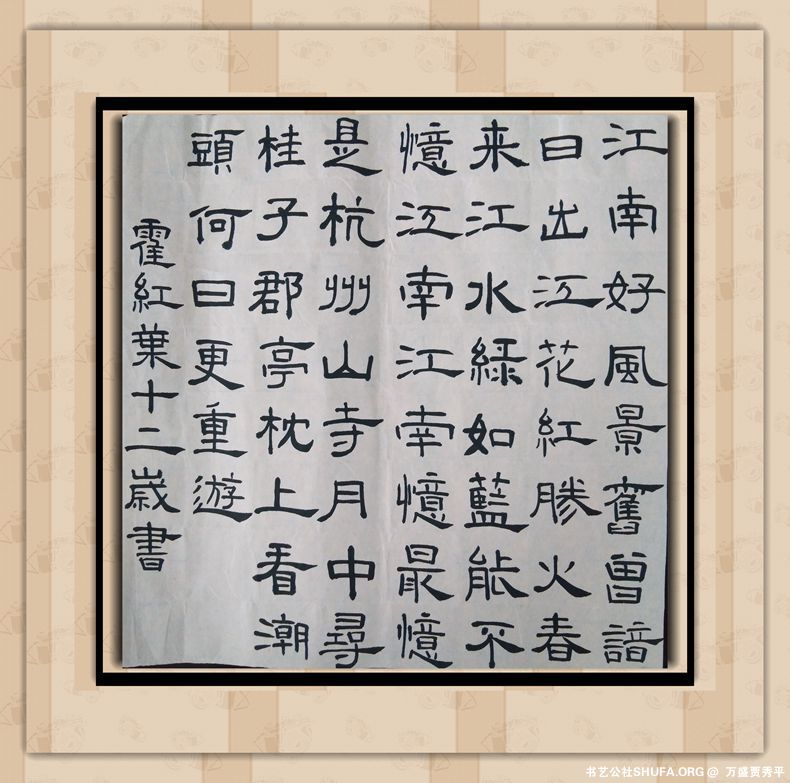 江南好風景舊曾諳
日出江花紅勝火春
来江水綠如藍能不
憶江南江南憶最憶
是杭州山寺月中尋
桂子郡亭枕上看潮
頭何日更重遊
霍紅葉十二歲書
书艺公社SHUFA.ORG @ 万盛贾秀平